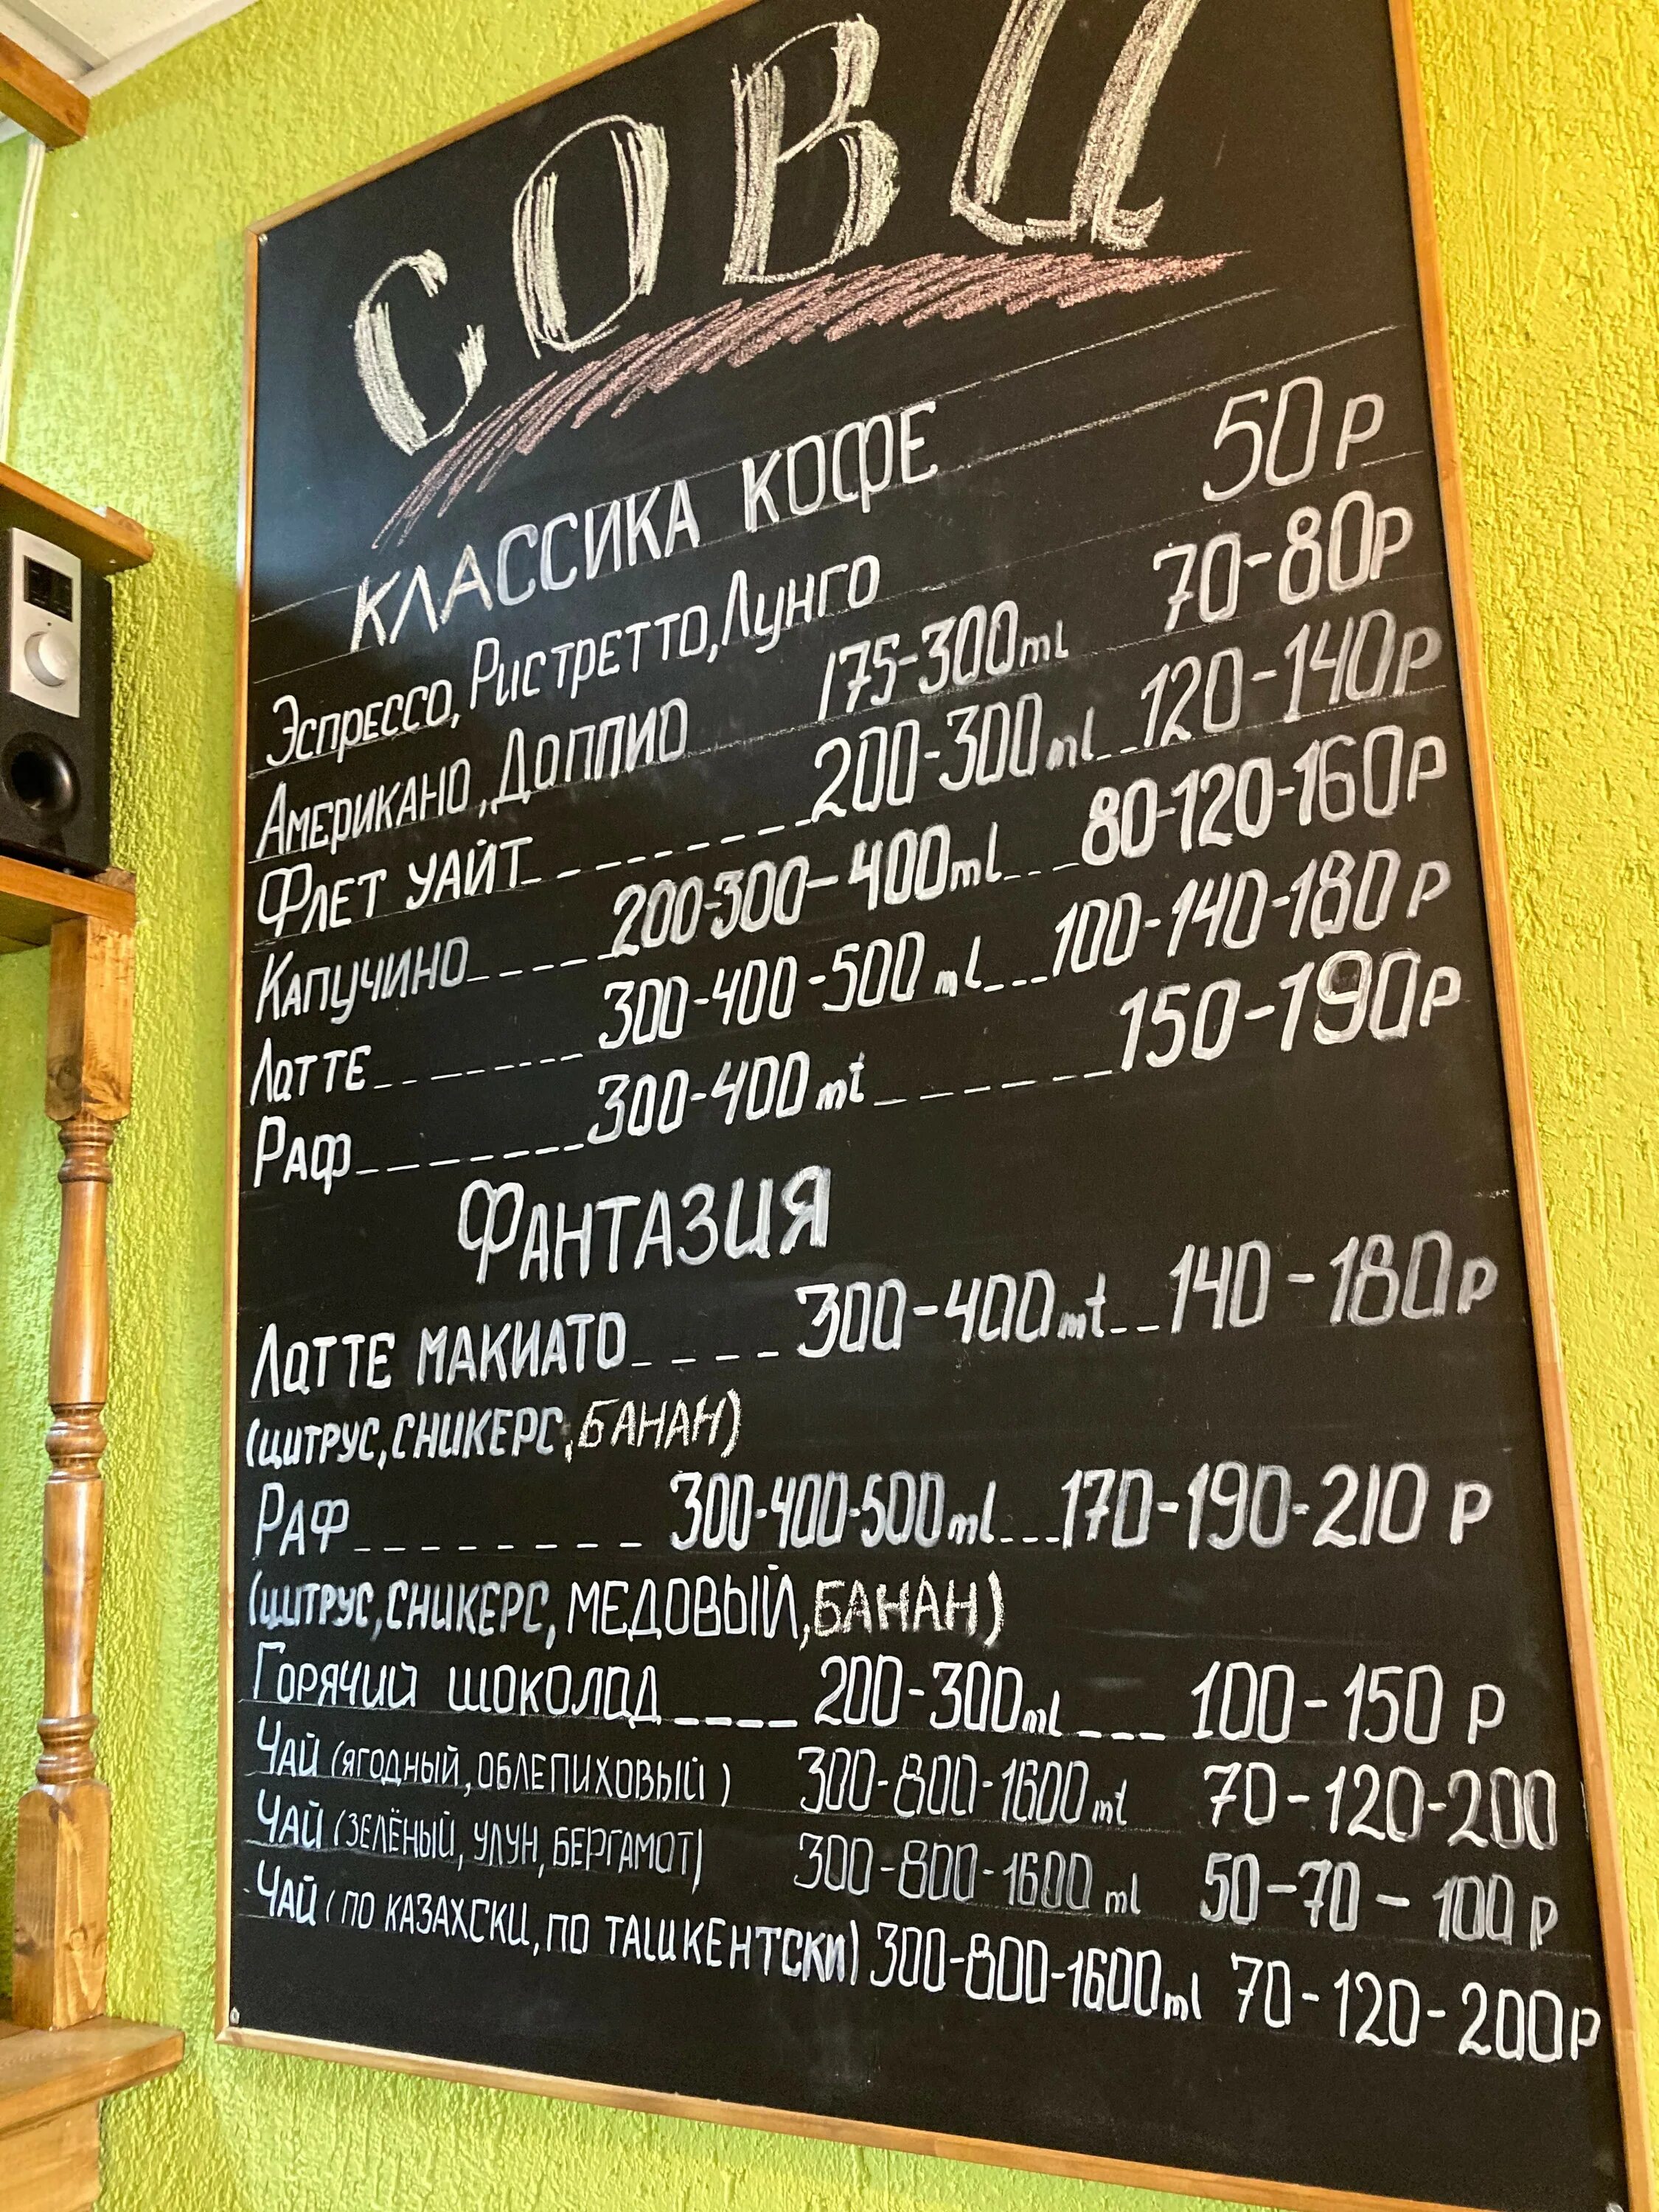 СОВА
КЛАССИКА КОФЕ
Эспрессо, Ристретто, Лунго 50р
Американо, Доппио 175-300ml 70-80р
Флет уайт 200-300ml 120-140р
Капучино 200-300-400ml 80-120-160р
Латте 300-400-500ml 100-140-180р
Раф 300-400ml 150-190р
Фантазия
Латте макиато 300-400ml 140-180р
(цитрус, сникерс, банан)
Раф 300-400-500ml 170-190-210р
(цитрус, сникерс, медовый, банан)
Горячий шоколад 200-300ml 100-150р
Чай (ягодный, облепиховый) 300-800-1600ml 70-120-200
Чай (зелёный, улун, бергамот) 300-800-1600ml 50-70-100р
Чай (по казахски, по ташкентски) 300-800-1600ml 70-120-200р